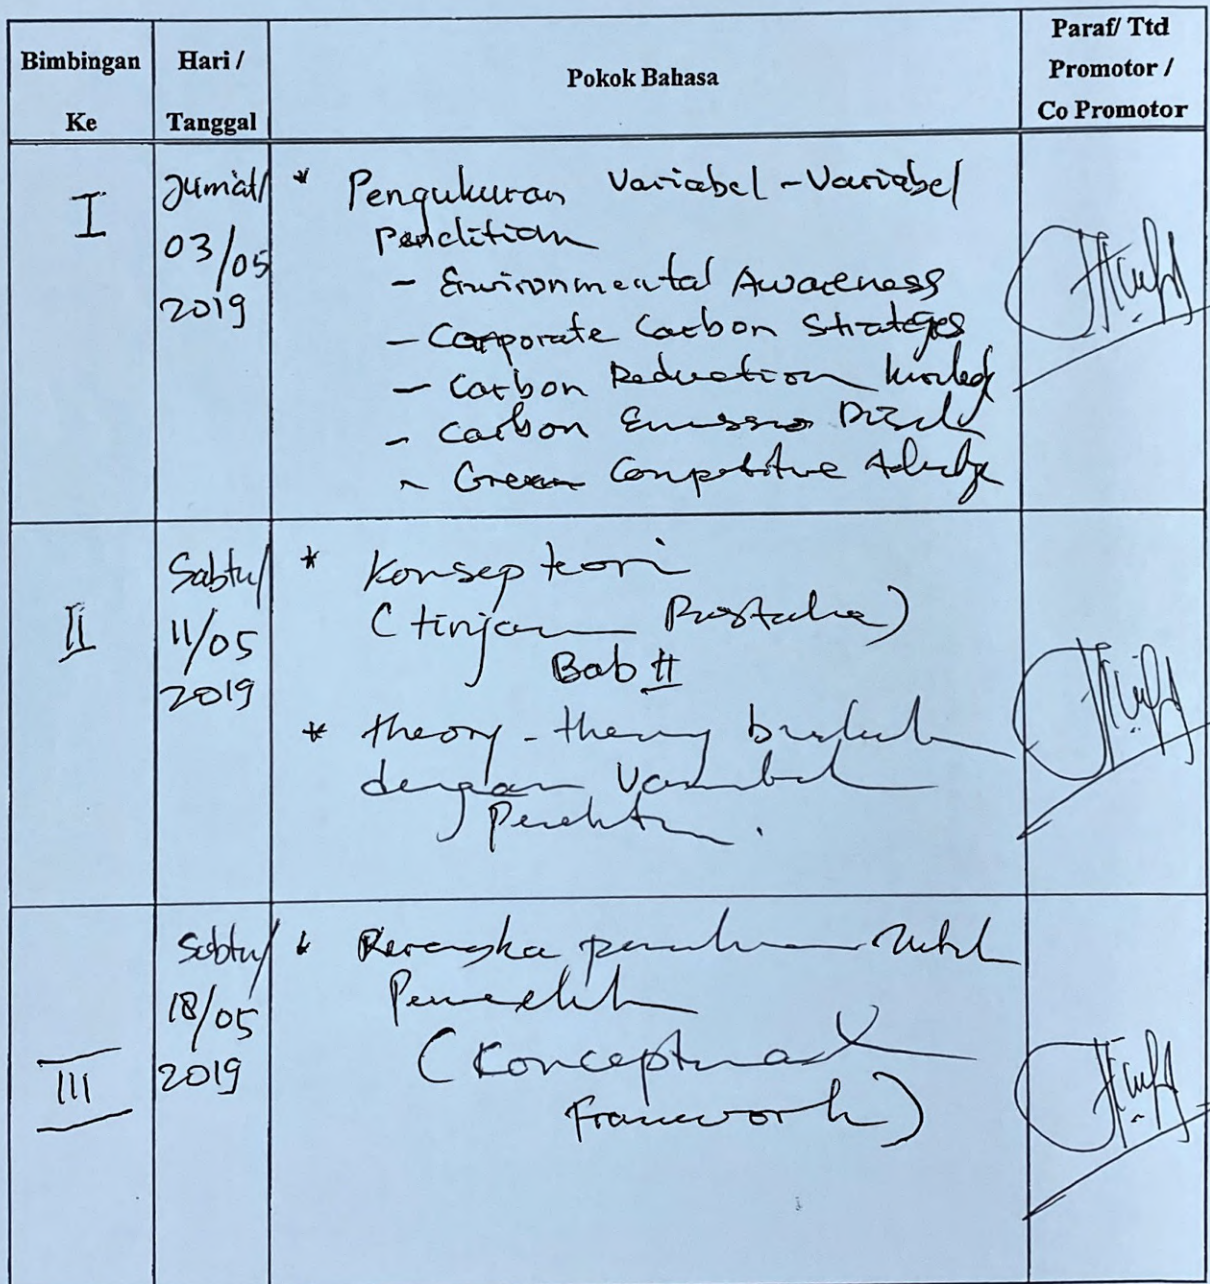 Bimbingan Ke
Hari / Tanggal
Pokok Bahasa
Paraf/ Ttd
Promotor /
Co Promotor
I
Jumat/
03/05
2019
* Pengukuran Variabel - Variabel
Penelitian
- Environmental Awareness
- Corporate Carbon Strategies
- Carbon Reduction
- Carbon
- Green Competitive
II
Sabtu/
11/05
2019
* Konsep teori
(tinjauan Pustaka)
Bab II
* theory - theory
dengan Variabel
Penelitian.
III
Sabtu/
18/05
2019
Kerangka
(Konceptual
Framework)